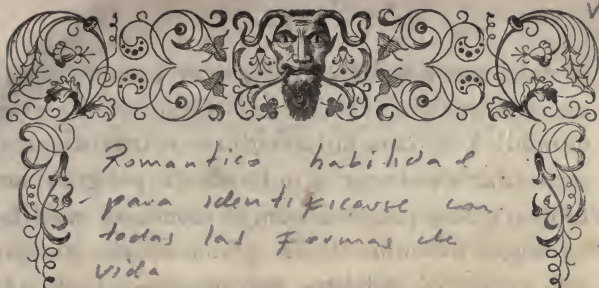 Romantico habilidad
- para identificarse con
todas las formas de
vida